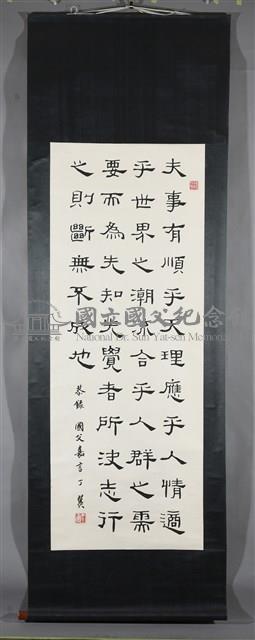 夫事有順乎天理應乎人情適
乎世界之潮流合乎人群之需
要而為先知先覺者所決志行
之則斷無不成地
恭錄 國父嘉言 丁
國立國父紀念
National Dr. Sun Yat-sen